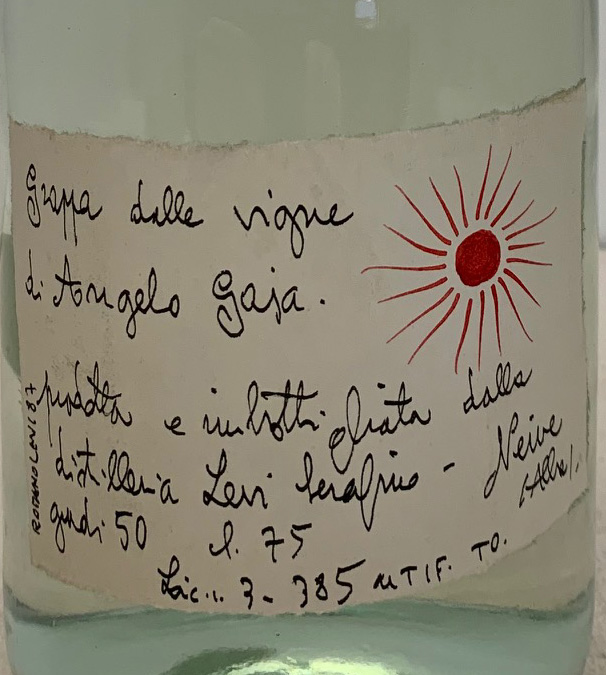 Grappa dalle vigne
di Angelo Gaja.
prodotta e imbottigliata dalla
distilleria Levi Serafino - Neive
(Alba).
gradi 50 l. 75
Lic. n. 3-385 UTIF. TO.
ROMANO LEVI 87